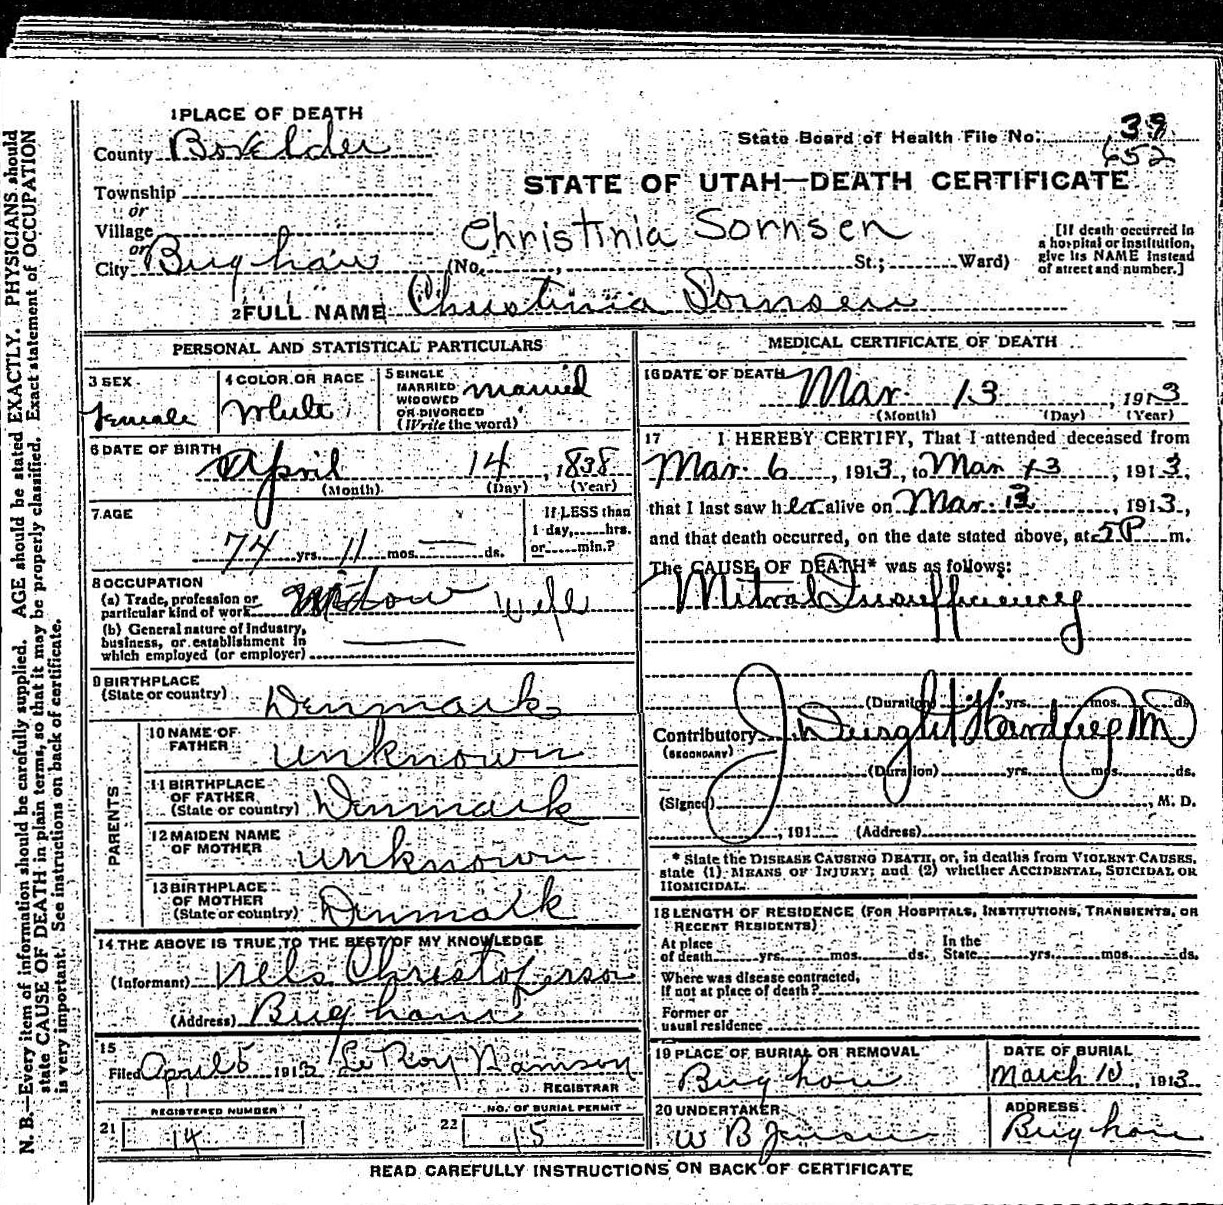 1 PLACE OF DEATH
County Box Elder
State Board of Health File No. 39
652
Township
or
Village
or
City Brigham
STATE OF UTAH—DEATH CERTIFICATE
Christinia Sornsen
(No. , St.; Ward)
[If death occurred in
a hospital or institution,
give its NAME instead
of street and number.]
2 FULL NAME Christinia Sornsen
PERSONAL AND STATISTICAL PARTICULARS
3 SEX
Female
4 COLOR OR RACE
White
5 SINGLE
MARRIED
WIDOWED
OR DIVORCED
(Write the word)
married
6 DATE OF BIRTH
April 14, 1838
(Month) (Day) (Year)
7 AGE
74 yrs. 11 mos. — ds.
If LESS than
1 day, hrs.
or min.?
8 OCCUPATION
(a) Trade, profession or
particular kind of work Wife
(b) General nature of industry,
business, or establishment in
which employed (or employer)
9 BIRTHPLACE
(State or country) Denmark
PARENTS
10 NAME OF
FATHER unknown
11 BIRTHPLACE
OF FATHER
(State or country) Denmark
12 MAIDEN NAME
OF MOTHER unknown
13 BIRTHPLACE
OF MOTHER
(State or country) Denmark
14 THE ABOVE IS TRUE TO THE BEST OF MY KNOWLEDGE
(Informant) Nels Christoferson
(Address) Brigham
15
Filed April 5 1913 Le Roy
REGISTRAR
REGISTERED NUMBER
21 14
NO. OF BURIAL PERMIT
22 15
MEDICAL CERTIFICATE OF DEATH
16 DATE OF DEATH
Mar. 13, 1913
(Month) (Day) (Year)
17 I HEREBY CERTIFY, That I attended deceased from
Mar. 6, 1913, to Mar 13, 1913,
that I last saw her alive on Mar. 13, 1913,
and that death occurred, on the date stated above, at 5 P m.
The CAUSE OF DEATH* was as follows:
Mitral Insufficiency
(Duration) yrs. mos. ds.
Contributory J Dwight Harding MD
(SECONDARY)
(Duration) yrs. mos. ds.
(Signed) , M. D.
, 191 (Address)
* State the DISEASE CAUSING DEATH, or, in deaths from VIOLENT CAUSES,
state (1) MEANS OF INJURY; and (2) whether ACCIDENTAL, SUICIDAL OR
HOMICIDAL.
18 LENGTH OF RESIDENCE (FOR HOSPITALS, INSTITUTIONS, TRANSIENTS, OR
RECENT RESIDENTS)
At place
of death yrs. mos. ds.
In the
State yrs. mos. ds.
Where was disease contracted,
if not at place of death?
Former or
usual residence
19 PLACE OF BURIAL OR REMOVAL
Brigham
DATE OF BURIAL
March 10, 1913
20 UNDERTAKER
W B Jensen
ADDRESS
Brigham
READ CAREFULLY INSTRUCTIONS ON BACK OF CERTIFICATE
N. B.—Every item of information should be carefully supplied. AGE should be stated EXACTLY. PHYSICIANS should
state CAUSE OF DEATH in plain terms, so that it may be properly classified. Exact statement of OCCUPATION
is very important. See instructions on back of certificate.